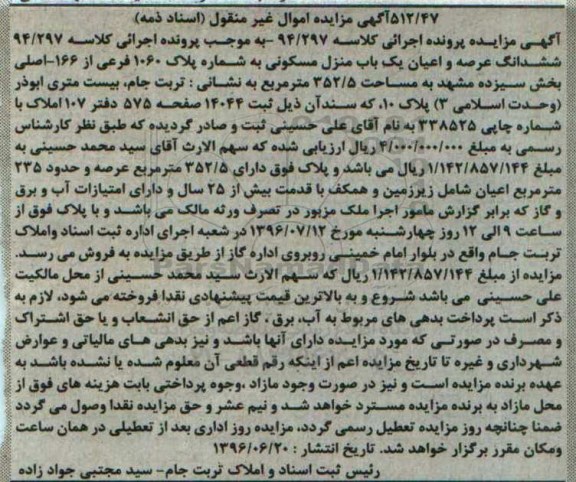 ۵۱۲/۴۷آگهی مزایده اموال غیر منقول (اسناد ذمه)
آگهی مزایده پرونده اجرائی کلاسه ۹۴/۲۹۷ -به موجب پرونده اجرائی کلاسه ۹۴/۲۹۷
ششدانگ عرصه و اعیان یک باب منزل مسکونی به شماره پلاک ۱۰۶۰ فرعی از ۱۶۶-اصلی
بخش سیزده مشهد به مساحت ۳۵۲/۵ مترمربع به نشانی : تربت جام، بیست متری ابوذر
(وحدت اسلامی ۳) پلاک ۱۰، که سندآن ذیل ثبت ۱۴۰۴۴ صفحه ۵۷۵ دفتر ۱۰۷ املاک با
شماره چاپی ۳۳۸۵۲۵ به نام آقای علی حسینی ثبت و صادر گردیده که طبق نظر کارشناس
رسمی به مبلغ ۴/۰۰۰/۰۰۰/۰۰۰ ریال ارزیابی شده که سهم الارث آقای سید محمد حسینی به
مبلغ ۱/۱۴۲/۸۵۷/۱۴۴ ریال می باشد و پلاک فوق دارای ۳۵۲/۵ مترمربع عرصه و حدود ۲۳۵
مترمربع اعیان شامل زیرزمین و همکف با قدمت بیش از ۲۵ سال و دارای امتیازات آب و برق
و گاز که برابر گزارش مامور اجرا ملک مزبور در تصرف ورثه مالک می باشد و با پلاک فوق از
ساعت ۹ الی ۱۲ روز چهارشنبه مورخ ۱۳۹۶/۰۷/۱۲ در شعبه اجرای اداره ثبت اسناد واملاک
تربت جام واقع در بلوار امام خمینی روبروی اداره گاز از طریق مزایده به فروش می رسد.
مزایده از مبلغ ۱/۱۴۲/۸۵۷/۱۴۴ ریال که سهم الارث سید محمد حسینی از محل مالکیت
علی حسینی می باشد شروع و به بالاترین قیمت پیشنهادی نقدا فروخته می شود، لازم به
ذکر است پرداخت بدهی های مربوط به آب، برق ، گاز اعم از حق انشعاب و یا حق اشتراک
و مصرف در صورتی که مورد مزایده دارای آنها باشد و نیز بدهی های مالیاتی و عوارض
شهرداری و غیره تا تاریخ مزایده اعم از اینکه رقم قطعی آن معلوم شده یا نشده باشد به
عهده برنده مزایده است و نیز در صورت وجود مازاد ،وجوه پرداختی بابت هزینه های فوق از
محل مازاد به برنده مزایده مسترد خواهد شد و نیم عشر و حق مزایده نقدا وصول می گردد
ضمنا چنانچه روز مزایده تعطیل رسمی گردد، مزایده روز اداری بعد از تعطیلی در همان ساعت
ومکان مقرر برگزار خواهد شد. تاریخ انتشار : ۱۳۹۶/۰۶/۲۰
رئیس ثبت اسناد و املاک تربت جام- سید مجتبی جواد زاده